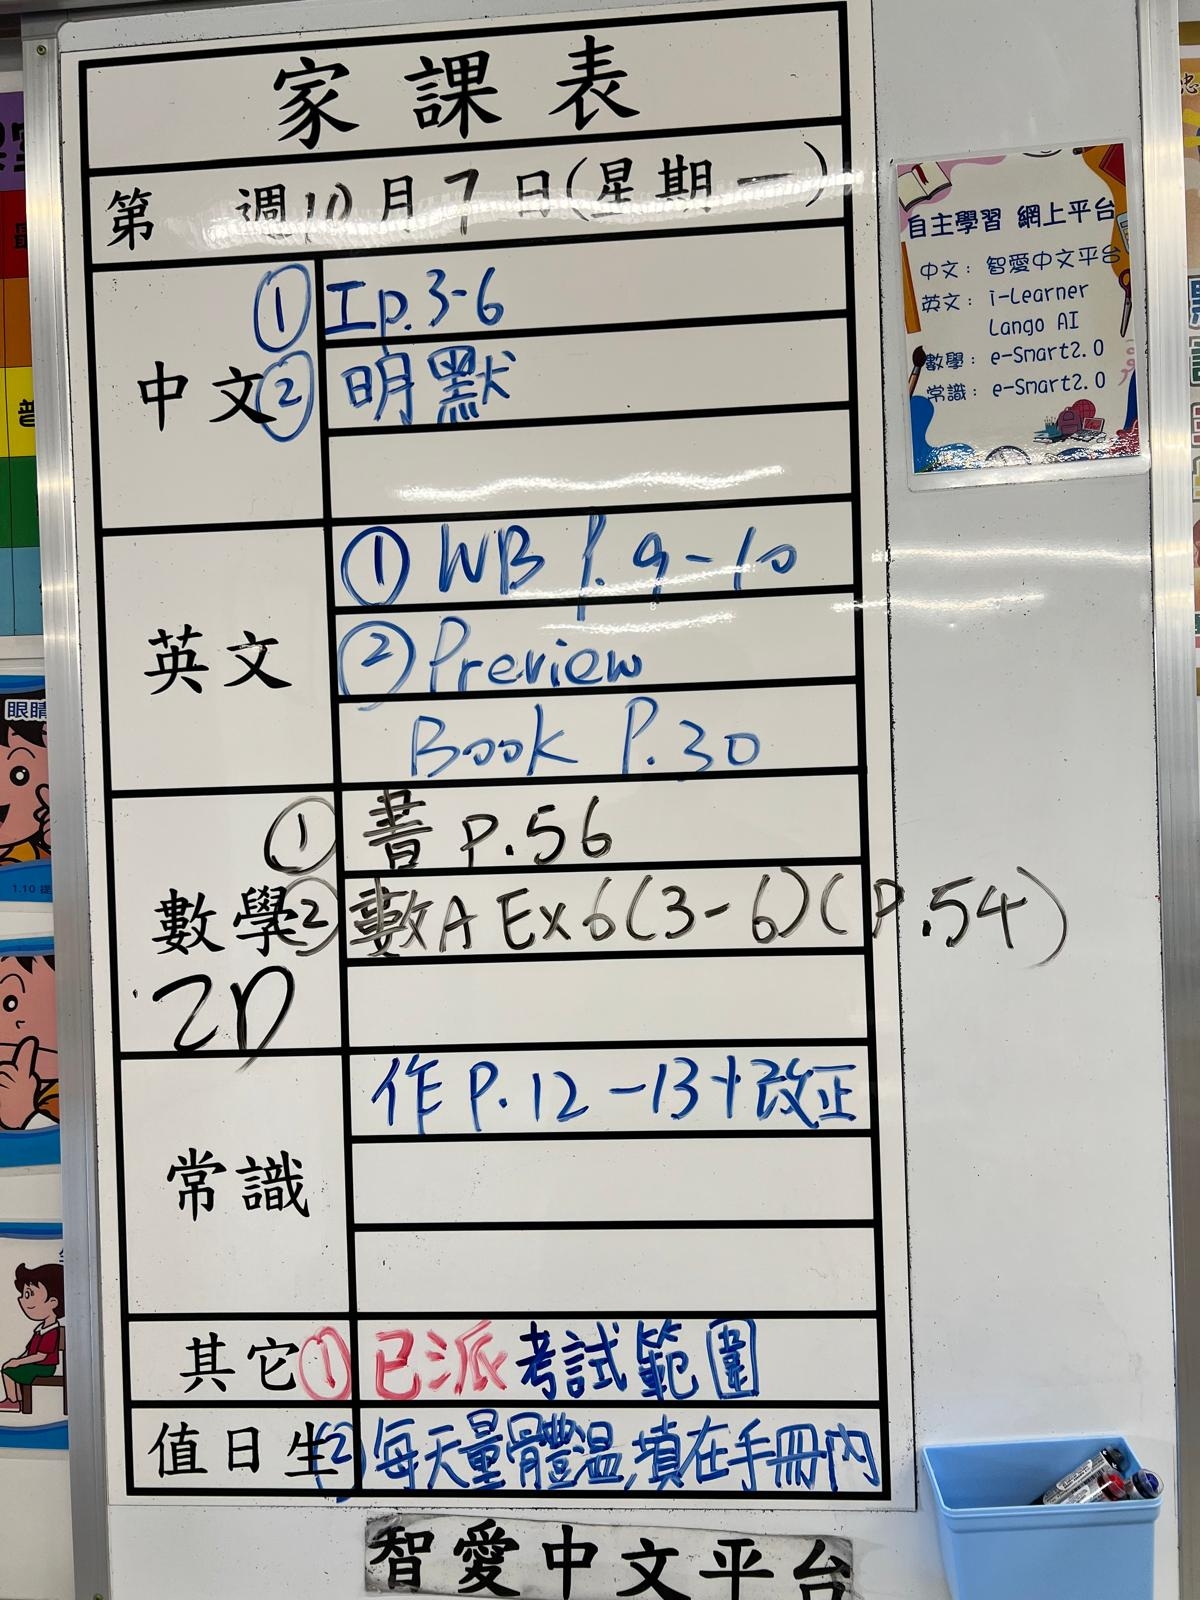 家課表
第 週10月7日(星期一)
中文
① 工p.3-6
② 明默
英文
① WB P.9-10
② Preview
Book P.30
數學
2D
① 書 p.56
② 數A Ex 6(3-6)(P.54)
常識
作 P.12-13+改正
其它
① 已派考試範圍
值日生
② 每天量體溫,填在手冊內
智愛中文平台
自主學習 網上平台
中文: 智愛中文平台
英文: i-Learner
Lango AI
數學: e-Smart2.0
常識: e-Smart2.0
眼睛
1.10